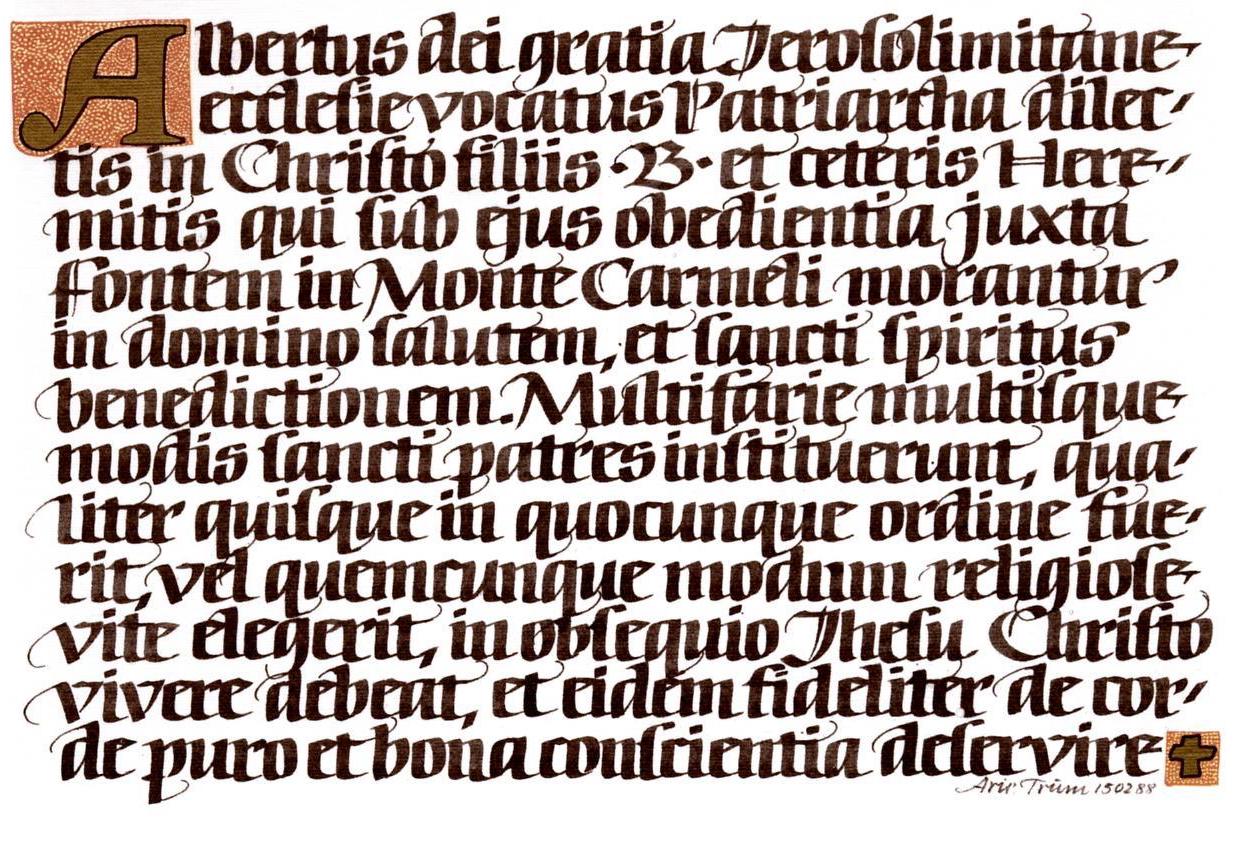 Albertus dei gratia Jeroſolimitane
eccleſie vocatus Patriarcha dilec-
tis in Chriſto filiis ·B· et ceteris Here-
mitis qui ſub ejus obedientia juxta
fontem in Monte Carmeli morantur
in domino ſalutem, et ſancti ſpiritus
benedictionem. Multifarie multiſque
modis ſancti patres inſtituerunt, qua-
liter quiſque in quocunque ordine fue-
rit, vel quemcunque modum religioſe
vite elegerit, in obſequio Jheſu Chriſto
vivere debeat, et eidem fideliter de cor-
de puro et bona conſcientia deſervire
Trüm 150288